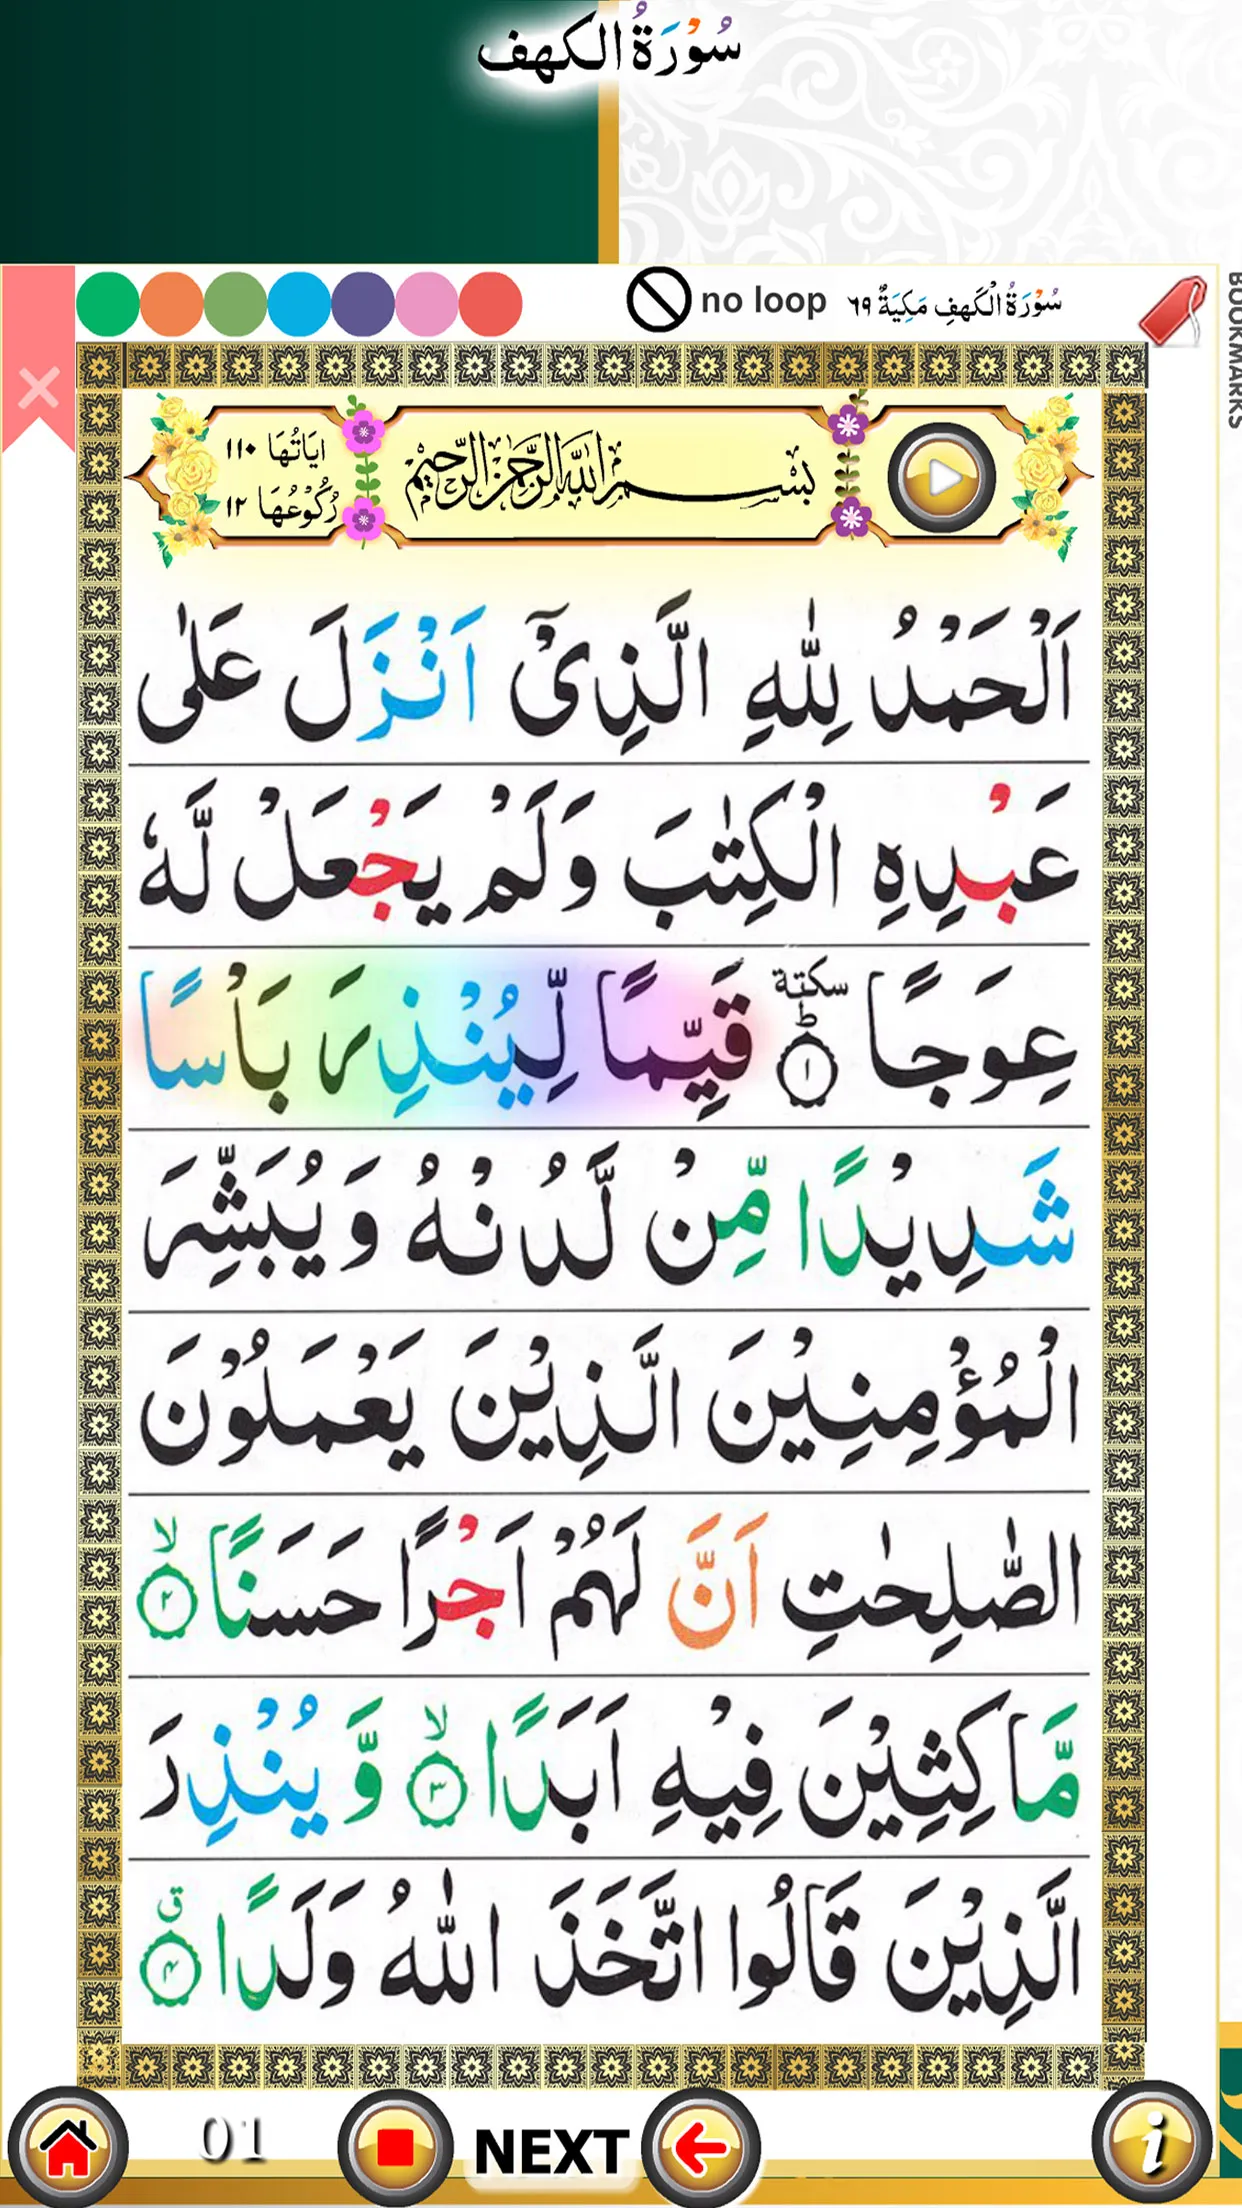 سُوْرَةُ الكهف
no loop
سُوْرَةُ الْكَهفِ مَكِيَةٌ ٦٩
BOOKMARKS
اٰيَاتُهَا ١١٠
رُكُوْعُهَا ١٢
بِسْمِ اللّٰهِ الرَّحْمٰنِ الرَّحِيْمِ
اَلْحَمْدُ لِلّٰهِ الَّذِىْۤ اَنْزَلَ عَلٰى
عَبْدِهِ الْكِتٰبَ وَلَمْ يَجْعَلْ لَّهٗ
عِوَجًا ؕ سكتة ١ قَيِّمًا لِّيُنْذِرَ بَاْسًا
شَدِيْدًا مِّنْ لَّدُنْهُ وَيُبَشِّرَ
الْمُؤْمِنِيْنَ الَّذِيْنَ يَعْمَلُوْنَ
الصّٰلِحٰتِ اَنَّ لَهُمْ اَجْرًا حَسَنًا ۙ ٢
مَّاكِثِيْنَ فِيْهِ اَبَدًا ۙ ٣ وَّيُنْذِرَ
الَّذِيْنَ قَالُوا اتَّخَذَ اللّٰهُ وَلَدًا ق ٤
01
NEXT
i